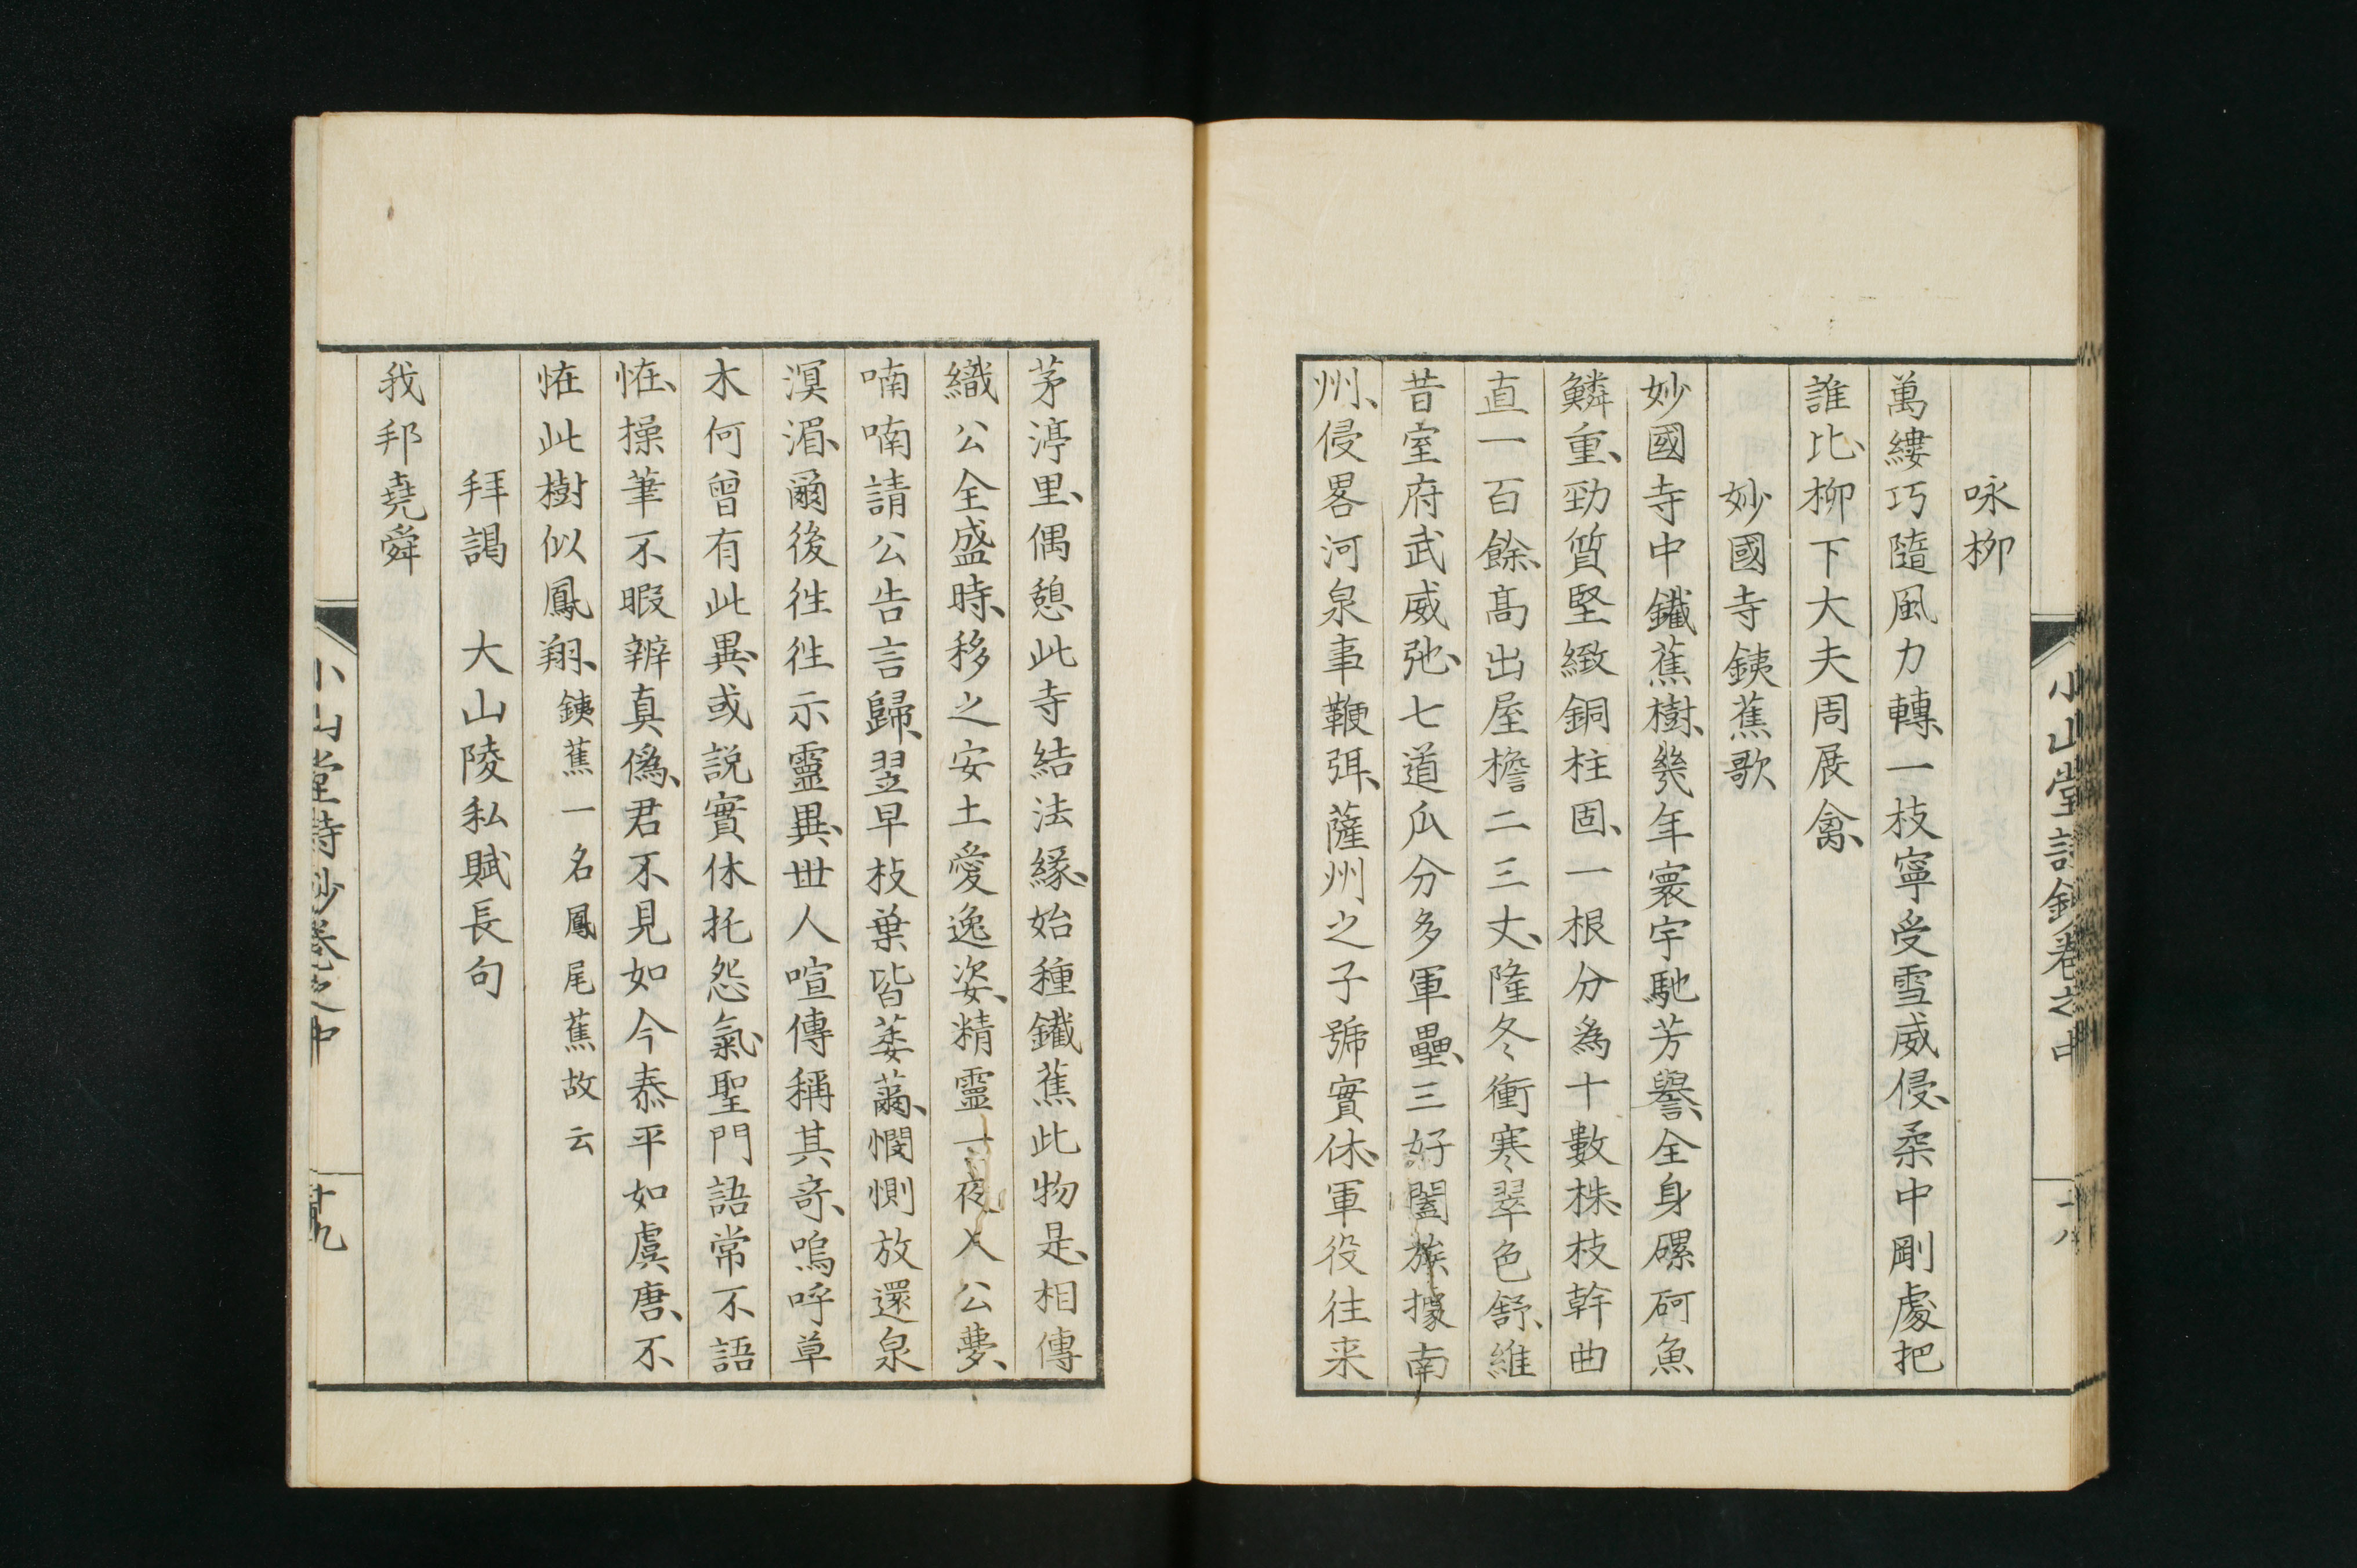 小山堂詩鈔卷之中
十八
咏柳
萬縷巧隨風力轉、一枝寧受雪威侵、柔中剛處把
誰比、柳下大夫周展禽、
妙國寺銕蕉歌
妙國寺中鐵蕉樹、幾年寰宇馳芳譽、全身磥砢魚
鱗重、勁質堅緻銅柱固、一根分為十數株、枝幹曲
直一百餘、高出屋檐二三丈、隆冬衝寒翠色舒、維
昔室府武威弛、七道瓜分多軍壘、三好闔族據南
州、侵畧河泉事鞭弭、薩州之子號實休、軍役往来
茅渟里、偶憩此寺結法緣、始種鐵蕉此物是、相傳
織公全盛時、移之安土愛逸姿、精靈一夜入公夢、
喃喃請公告言歸、翌早枝葉皆萎薾、憫惻放還泉
溟湄、爾後徃徃示靈異、世人喧傳稱其奇、嗚呼草
木何曾有此異、或説實休托怨氣、聖門語常不語
恠、操筆不暇辨真偽、君不見如今泰平如虞唐、不
恠此樹似鳳翔、銕蕉一名鳳尾蕉故云
拜謁　大山陵私賦長句
我邦堯舜
小山堂詩鈔卷之中
十九